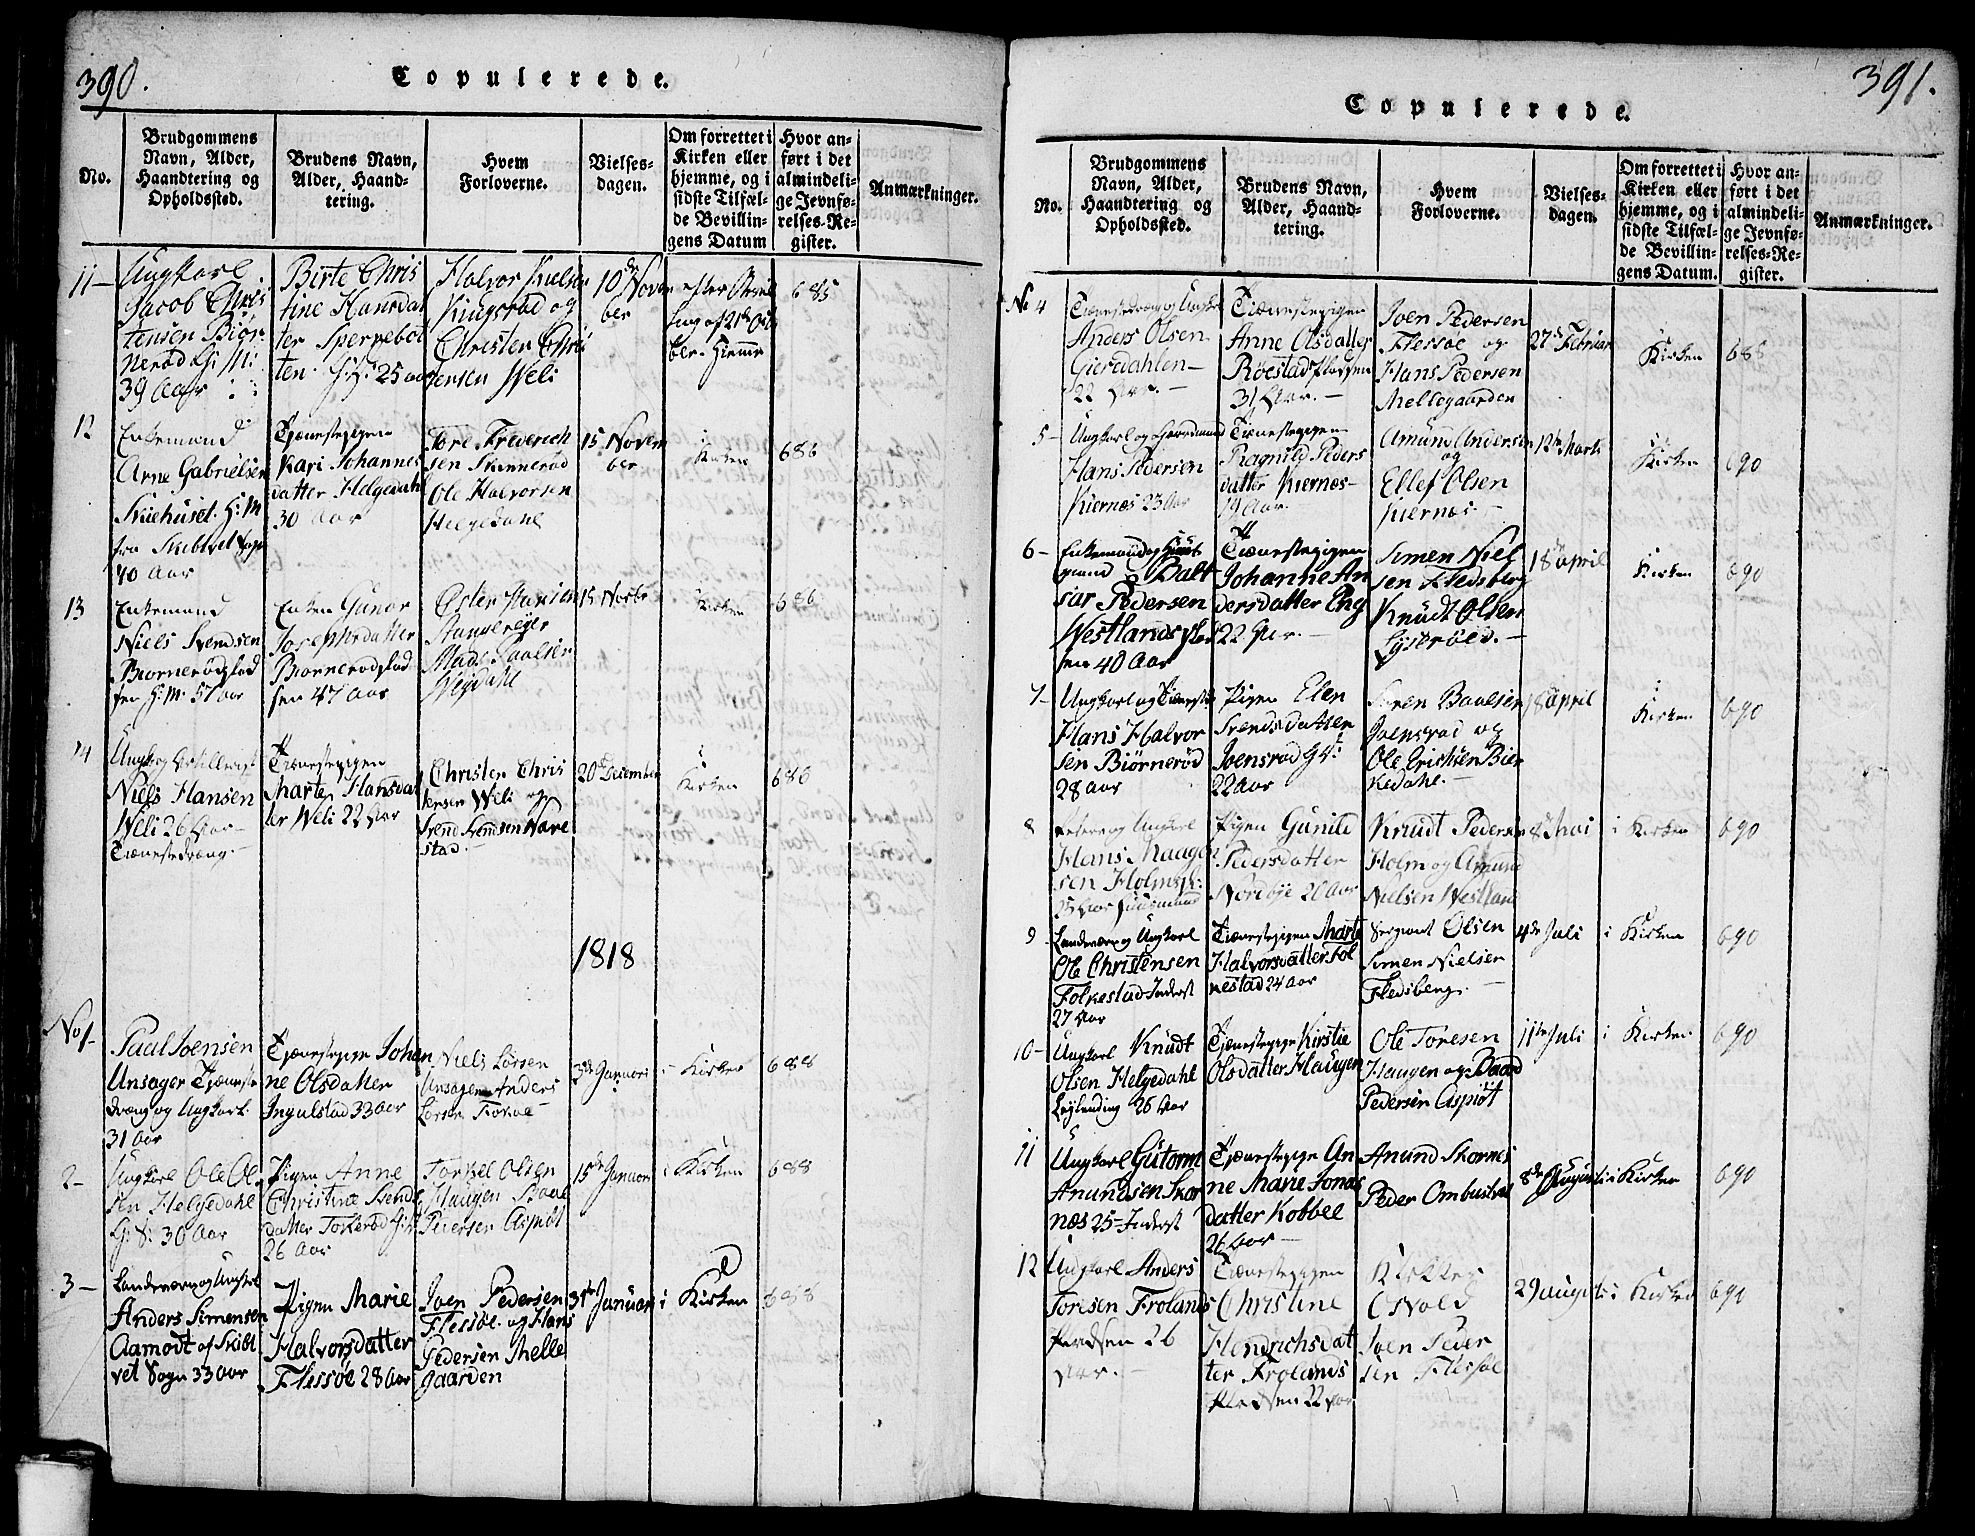 390.
Copulerede.
No.
Brudgommens
Navn, Alder,
Haandtering og
Opholdssted.
Brudens Navn,
Alder, Haand-
tering.
Hvem
Forloverne.
Vielses-
dagen.
Om forrettet i
Kirken eller
hjemme, og i
sidste Tilfæl-
de Bevillin-
gens Datum
Hvor an-
ført i det
almindeli-
ge Jevnfø-
relses-Re-
gister.
Anmærkninger.
11 —
Ungkarl
Jacob Chris
tensen Biør
nerød G: M:
39 Aar
Birte Chris
tine Hansdat
ter Sperrebot
ten 25 aar
Halvor
Kingsrød og
Christen Chris
tensen Weli
10de Novem
ber
hiemme
685
12
Enkemand
Arne Gabrielsen
Skiehuset H: M
fra Skibtvet Sogn
40 Aar
Tjenestepigen
Kari Johannes
datter Helgedahl
30 Aar
Tore Frederich
sen Skinnerød
Ole Halvorsen
Helgedahl
15 Novem
ber
i
Kirken
686
13
Enkemand
Niels Svendsen
Biørnerødplad
sen H: M: 57 aar
Enken Gunor
Josephsdatter
Biørnerødplad
sen 47 Aar
Østen
Mads Paulsen
15 Novbr
Kirken
686
14
Niels Hansen
Weli 26 Aar
Tienestedreng.
Tienestepigen
Marte Hansdat
ter Weli 22 Aar
Christen Chris
tensen Weli og
Svend Svendsen Nare
stad.
20de December
i
Kirken
686
1818
No 1.
Paul Joensen
Unsager Tjæneste
dreng og Ungkarl
31 Aar
Tjænestepige Johan
ne Olsdatter
Ingulstad 33 Aar
Niels Lorsen
Unsager Anders
Lorsen
3de Januari
i Kirken
688
2 -
Ungkarl Ole Ol
sen Helgedahl
G: S: 30 Aar
Pigen Anne
Christine Svends
datter Torkerød
26 Aar
Torkel Olsen
Haugen
Pedersen Aspiøt
15de Januari
i Kirken
688
3 -
Landeværn og Ungkarl
Anders Simensen
Aamodt af Skibt
vet Sogn 33 aar
Pigen Marie
Halvorsdatter
Flessøe 28 Aar
Joen Pedersen
Flessøe og Hans
Pedersen Melle
gaarden
31te Januari
i Kirken
688
391.
Copulerede.
No.
Brudgommens
Navn, Alder,
Haandtering og
Opholdssted.
Brudens Navn,
Alder, Haand-
tering.
Hvem
Forloverne.
Vielses-
dagen.
Om forrettet i
Kirken eller
hjemme, og i
sidste Tilfæl-
de Bevillin-
gens Datum.
Hvor an-
ført i det
almindeli-
ge Jevnfø-
relses-Re-
gister.
Anmærkninger.
No 4
Tienestedreng og Ungkarl
Anders Olsen
Gierdahlen
22 Aar.
Tiænestepigen
Anne Olsdatter
Røestad Pladsen
31 Aar.
Joen Pedersen
Flessøe og
Hans Pedersen
Mellegaarden
27de Februar
Kirken
688
5 -
Ungkarl og Gaardmand
Hans Pedersen
Kiernæs 23 Aar
Tienestepigen
Ragnild Peders
datter Kiernæs
19 Aar.
Amund Andersen
og
Ellef Olsen
Kiernæs
12te Marti
Kirken
690
6 -
Enkemand og Huus
mand Balt
sar Pedersen
Westlandsplad
sen 40 Aar
Tiænestepigen
Johanne An
dersdatter Eng
22 Aar.
Simen Niel
sen Fledsberg
Knudt Olsen
Lysrøed.
18 april
i
Kirken
690
7 -
Ungkarl og
Hans Halvor
sen Biørnerød
28 aar
Pigen Elen
Svendsdatter
Joensrød
22 Aar
Søren Baalsen
Joensrød og
Ole Erichsen Bier
kedahl.
18 april
i
Kirken
690
8
Hans Maagen
sen Holms
25 Aar Huusmand
Pigen Gunild
Pedersdatter
Nordbye 20 Aar
Knudt Pedersen
Holm og Amund
Nielsen Westland
8de Mai
i Kirken
690
9 -
Landeværn og Ungkarl
Ole Christensen
Folkestad Inderst
27 Aar
Tiænestepigen Marte
Halvorsdatter Fol
kestad 24 aar
Sergeant Olsen
Simen Nielsen
Fledsberg.
4de Juli
i Kirken
690
10 -
Ungkarl Knudt
Olsen Helgedahl
Leylending 26 Aar
Tjænestepige Kirstie
Olsdatter Haugen
Ole Toresen
Haugen og Baard
Pedersen Aspiøt
11te Juli
i Kirken
690
11
Ungkarl Gutorm
Anundsen Skor
næs 25 - Inderst
Tjænestepige An
ne Marie Jonas
datter Kobbel
26 Aar
Anund Skornes
Peder Ombustvet
8de August
i Kirken
690
12
Ungkarl Anders
Toresen Frolands
Pladsen 26
Aar.
Tiænestepigen
Christine
Hendrichsdat
ter Frolands
Pladsen 22 Aar
Klokker
Osvold
Joen Peder
sen Flessøe
29 august
i Kirken
691